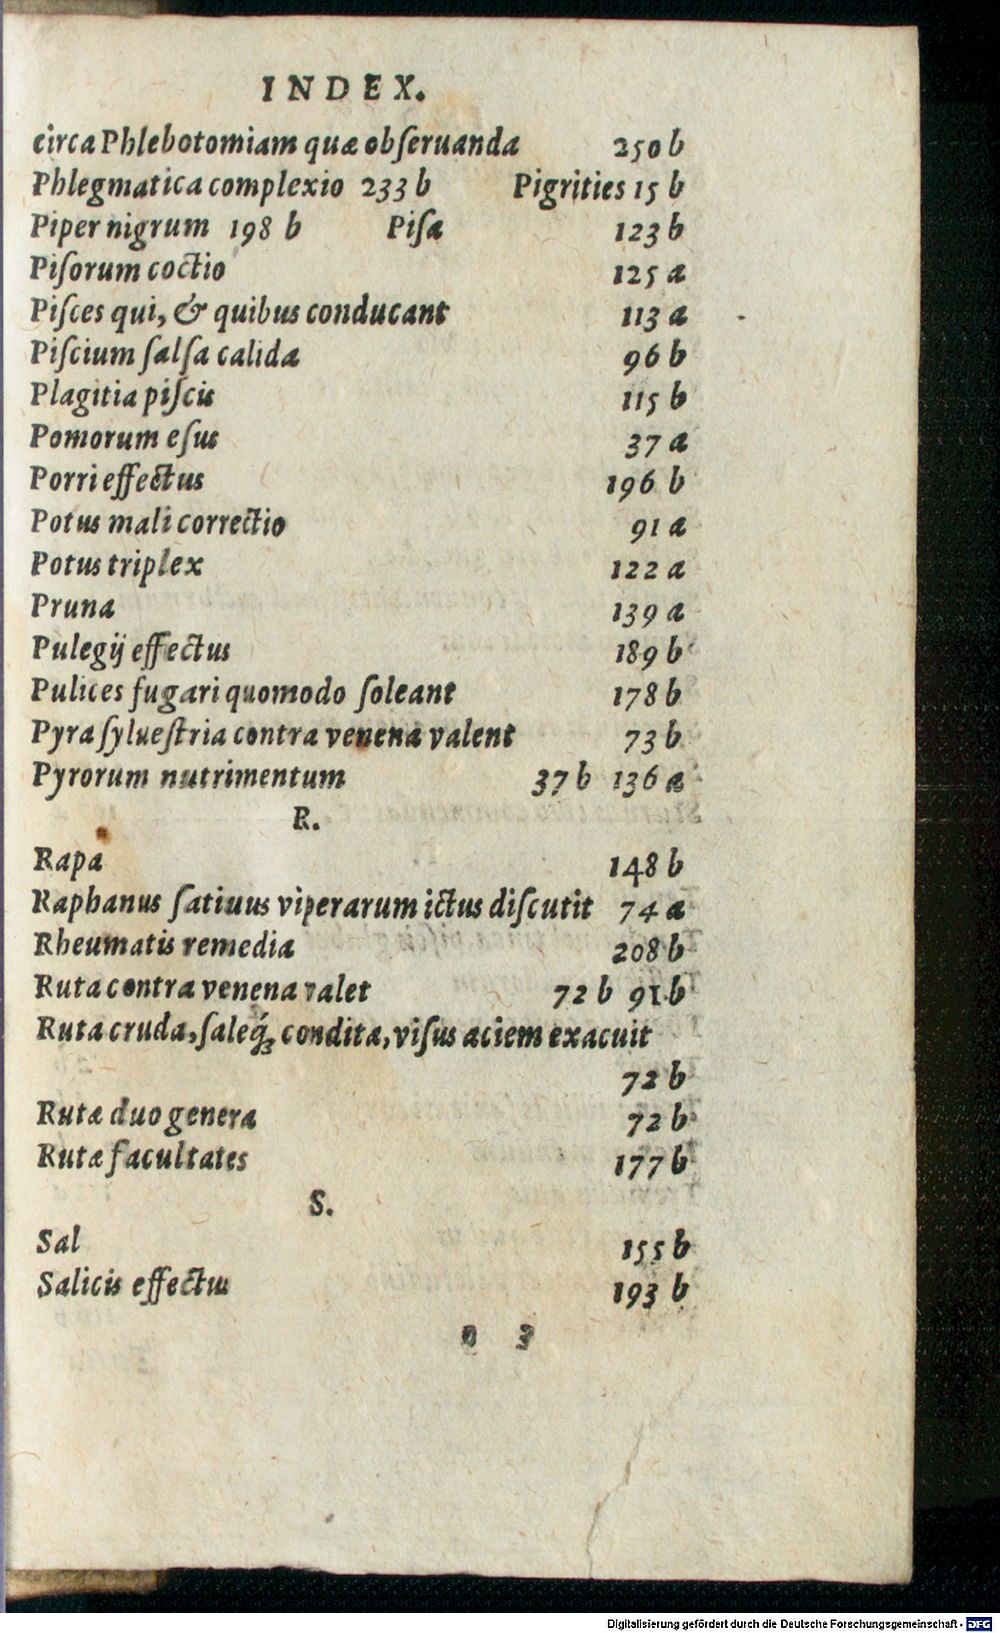 INDEX.
circa Phlebotomiam quæ obſeruanda 250 b
Phlegmatica complexio 233 b Pigrities 15 b
Piper nigrum 198 b Piſa 123 b
Piſorum coctio 125 a
Piſces qui, & quibus conducant 113 a
Piſcium ſalſa calida 96 b
Plagitia piſcis 115 b
Pomorum eſus 37 a
Porri effectus 196 b
Potus mali correctio 91 a
Potus triplex 122 a
Pruna 139 a
Pulegij effectus 189 b
Pulices fugari quomodo ſoleant 178 b
Pyra ſylueſtria contra venena valent 73 b
Pyrorum nutrimentum 37 b 136 a
R.
Rapa 148 b
Raphanus ſatiuus viperarum ictus diſcutit 74 a
Rheumatis remedia 208 b
Ruta contra venena valet 72 b 91 b
Ruta cruda, ſaleq́; condita, viſus aciem exacuit
72 b
Rutæ duo genera 72 b
Rutæ facultates 177 b
S.
Sal 155 b
Salicis effectus 193 b
3
Digitalisierung gefördert durch die Deutsche Forschungsgemeinschaft - DFG